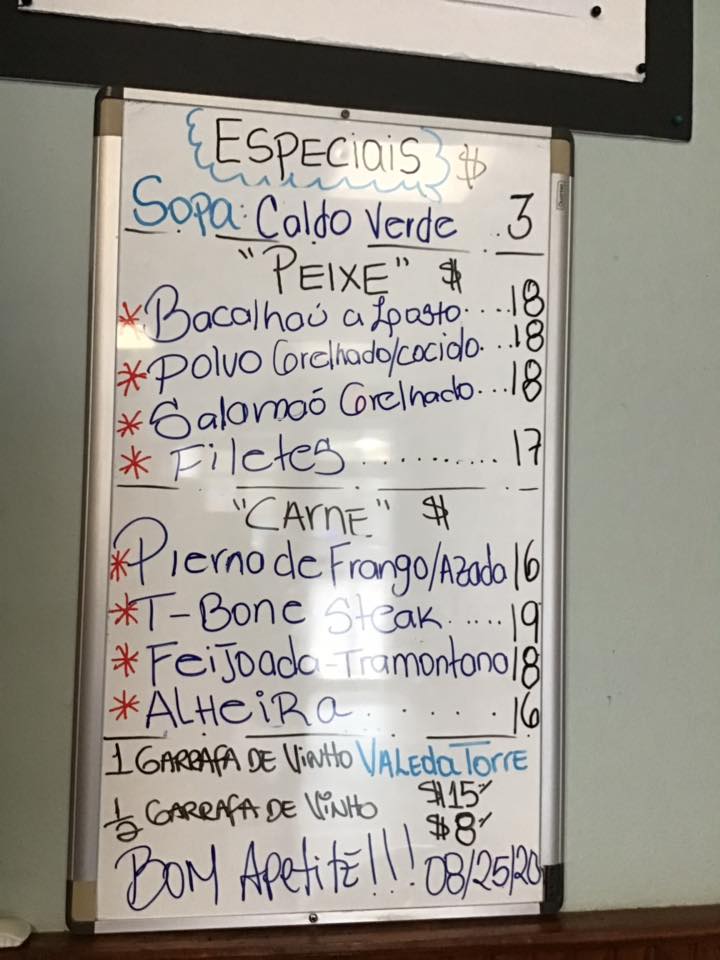 ESPECIAIS $
Sopa: Caldo Verde ..3
"PEIXE" $
*Bacalhaó a Lpasto.....18
*Polvo Grelhado/cocido...18
*Salomaó Grelhado...18
*Filetes..........17
"CARNE" $
*Pierno de Frango/Azada 16
*T-Bone Steak.....19
*Feijoada-Tramontano 18
*ALHEIRA.....16
1 GARRAFA DE VINHO VALEdaTORRE
$15
1/2 GARRAFA DE VINHO $8
BOM APETITE!!! 08/25/20